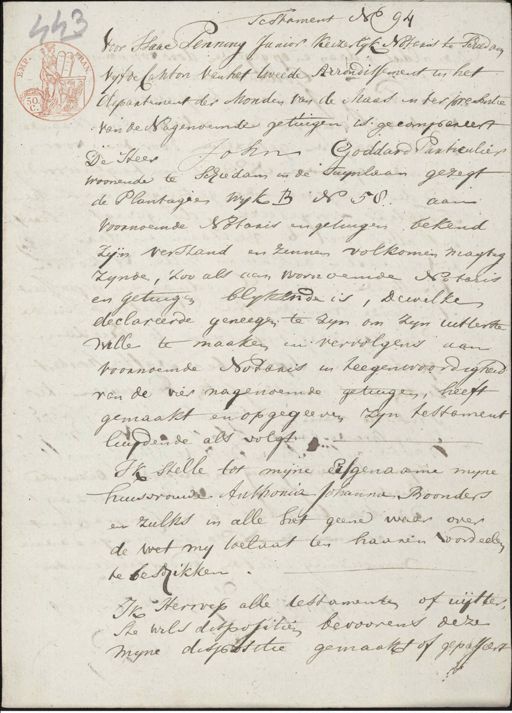 443
Testament No 94
EMP. FRAN
50 C.
Voor Isaac Penning Junior Keizerlyk Notaris te Schiedam
vyfde Canton van het tweede Arrondissement in het
departement der Monden van de Maas in ter presentie
van de Nagenoemde getuigen is gecompareert
De Heer John Goddard Particulier
woonende te Schiedam in de Tuynlaan gezegt
de Plantagien wyk B No 58 aan
voornoemde Notaris en getuigen bekend
Zyn verstand en zinnen volkomen magtig
Zynde, zoo als aan voornoemde Notaris
en getuigen blykende is, dewelke
declareerde geneegen te zyn om zyn uitterste
wille te maaken en vervolgens aan
voornoemde Notaris in teegenwoordigheid
van de vier nagenoemde getuigen, heeft
gemaakt en opgegeeven zyn testament
luydende als volgt
Ik stelle tot myne erfgenaame myne
huusvrouw Anthonia Johanna Boonders
en zulks in alle het geene waar over
de wet my toelaat ten haaren voordeelen
te beschikken.
Ik Herroep alle testamenten of uytter
ste wils dispositien bevoorens deze
myne dispositie gemaakt of gepasseert